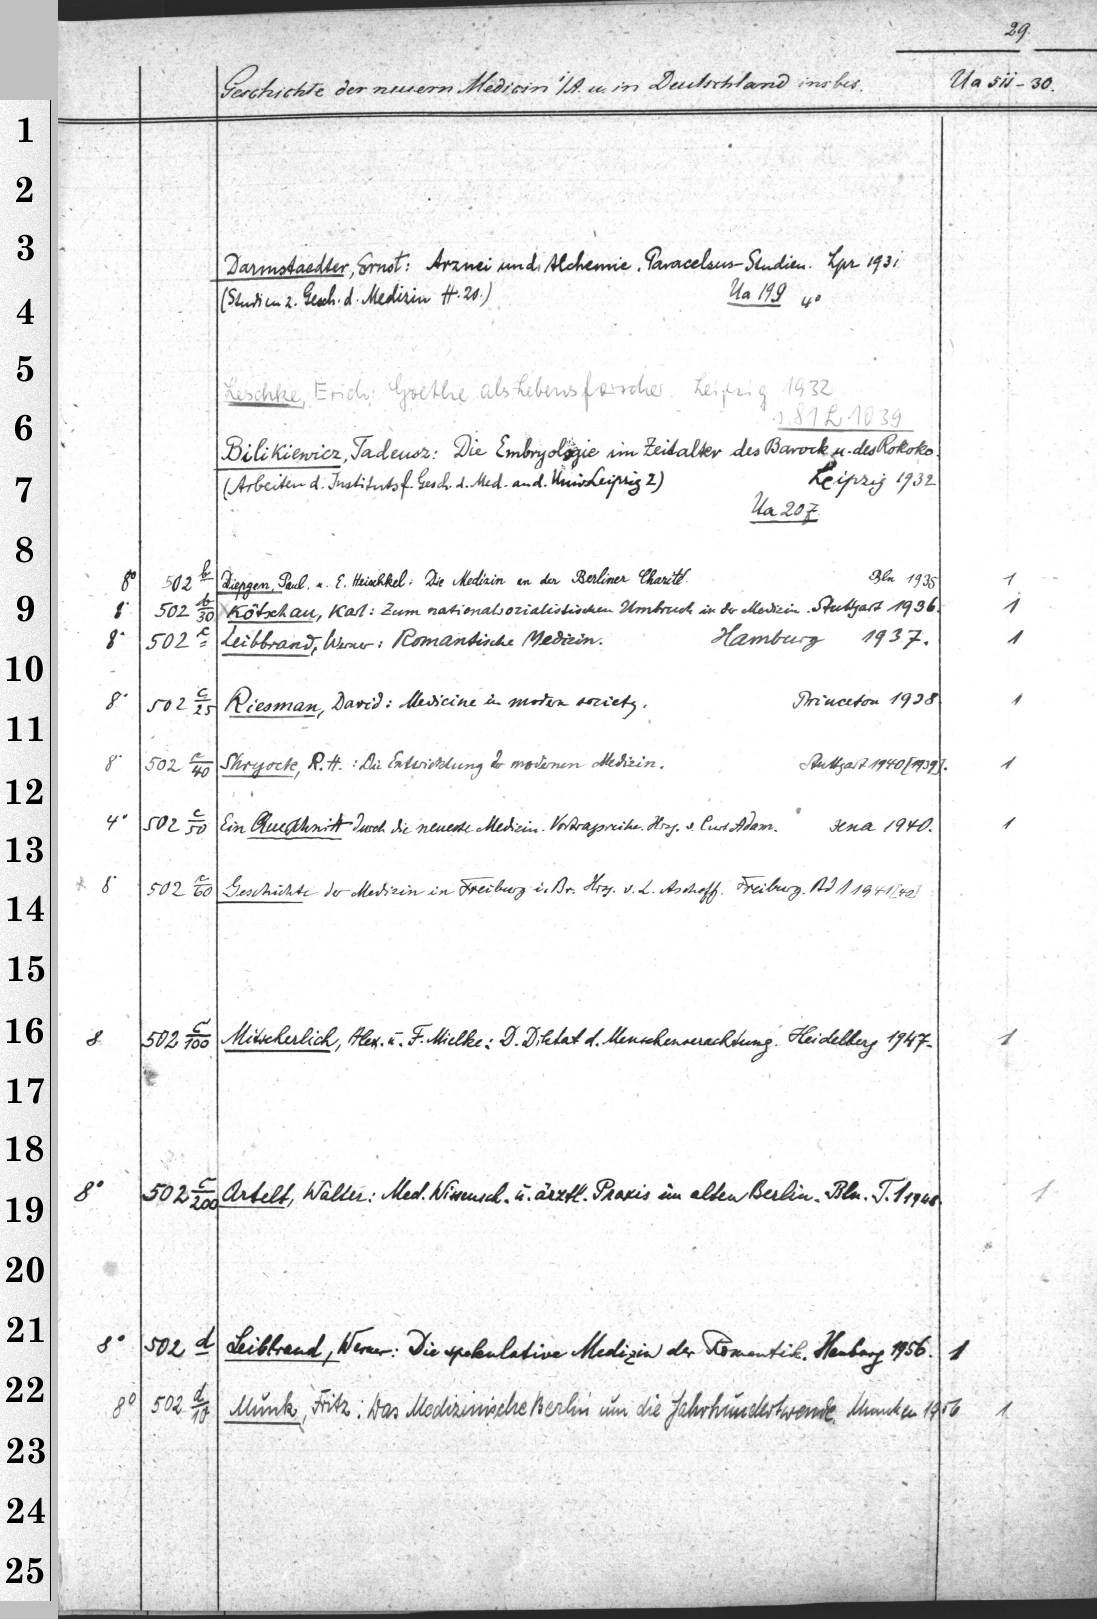 29.
Geschichte der neuern Medicin i/A. u. in Deutschland insbes. Ua 511-30.
1
2
3 Darmstaedter, Ernst: Arznei und Alchemie. Paracelsus-Studien. Lpz 1931
4 (Studien z. Gesch. d. Medizin H. 20.) Ua 199 4°
5
Leschke, Erich: Goethe als Lebensforscher. Leipzig 1932
6 81 L 1039
Bilikiewicz, Tadeusz: Die Embryologie im Zeitalter des Barock u. des Rokoko.
7 (Arbeiten d. Instituts f. Gesch. d. Med. an d. Univ. Leipzig 2) Leipzig 1932
Ua 207.
8
8° 502 b Diepgen, Paul u. E. Heischkel: Die Medizin an der Berliner Charité. Bln 1935 1
9 8° 502 b/30 Kötschau, Karl: Zum nationalsozialistischen Umbruch in der Medicin. Stuttgart 1936. 1
8° 502 c Leibbrand, Werner: Romantische Medizin. Hamburg 1937. 1
10
8° 502 c/25 Riesman, David: Medicine in modern society. Princeton 1938. 1
11
8° 502 c/40 Shryock, R. H.: Die Entwicklung der modernen Medizin. Stuttgart 1940 [1939]. 1
12
4° 502 c/50 Ein Querschnitt durch die neueste Medizin. Vortragsreihe. Hrsg. v. Curt Adam. Jena 1940. 1
13
8° 502 c/60 Geschichte der Medizin in Freiburg i. Br. Hrsg. v. L. Aschoff. Freiburg. Bd 1 1941[42]
14
15
16 8 502 c/100 Mitscherlich, Alex. u. F. Mielke: D. Diktat d. Menschenverachtung. Heidelberg 1947. 1
17
18
8° 502 c/200 Artelt, Walter: Med. Wissensch. u. ärztl. Praxis im alten Berlin. Bln. T. 1 1948. 1
19
20
21 8° 502 d Leibbrand, Werner: Die spekulative Medizin der Romantik. Hamburg 1956. 1
22 8° 502 d/10 Munk, Fritz: Das Medizinische Berlin um die Jahrhundertwende. München 1956 1
23
24
25